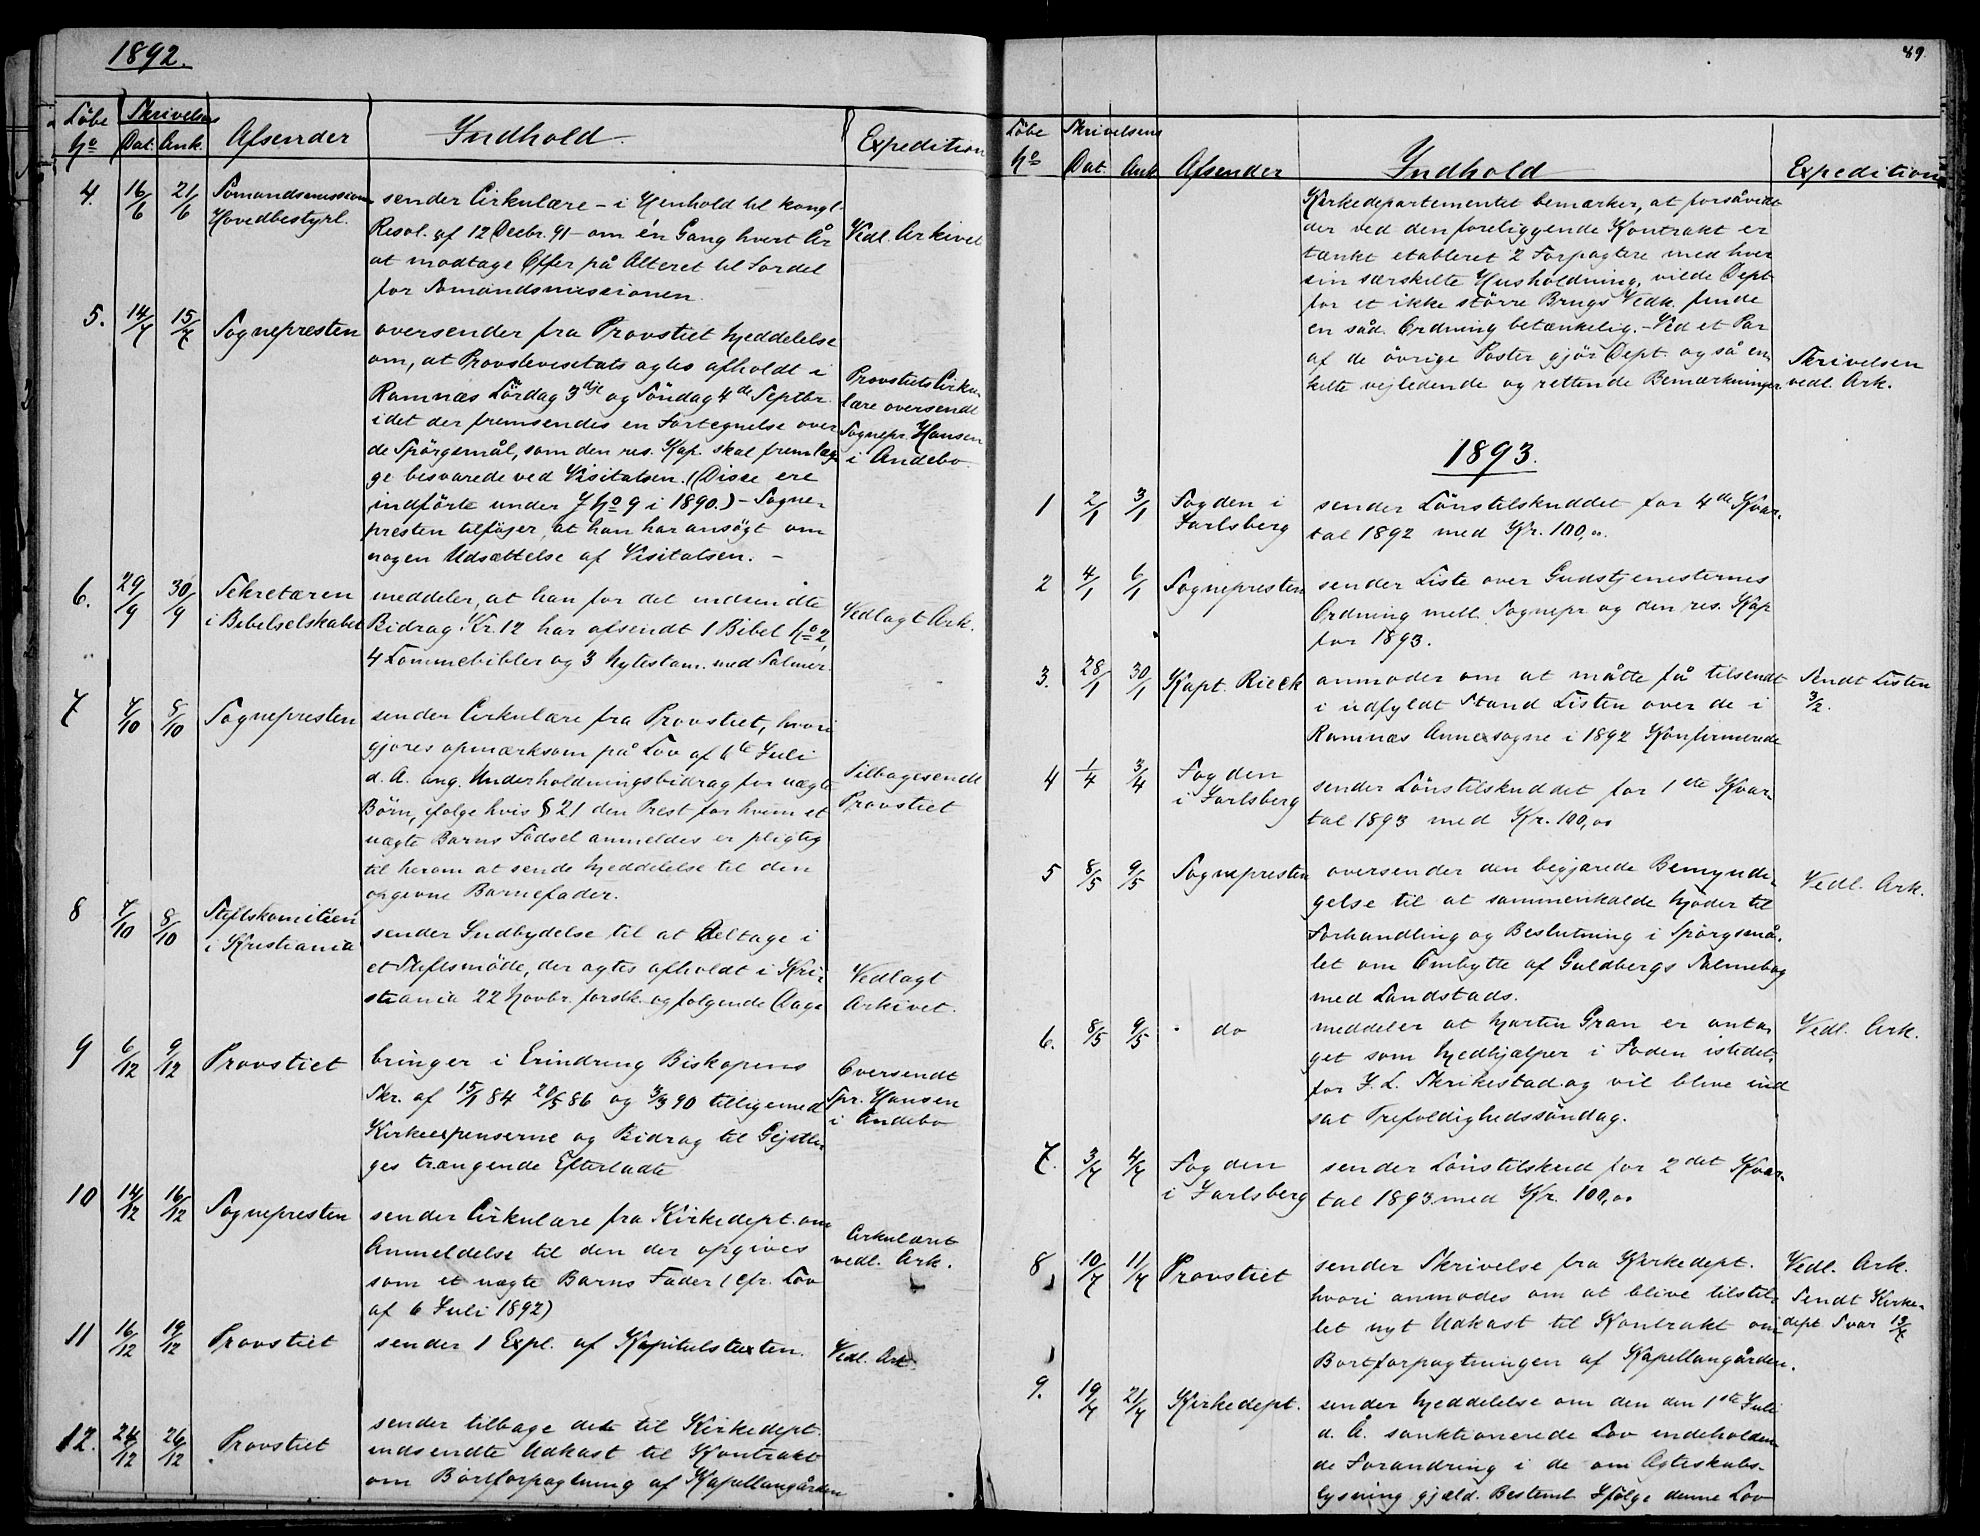 1892.
Löbe No Skrivelsens Dat. Ank. Afsender Indhold. Expedition
4. 16/6 21/6 Sømandsmissions Hovedbestyrl.
sender Cirkulære - i Henhold til kongl.
Resol. af 12 Decbr. 91 - om én Gang hvert År
at modtage Offer på Alteret til Fordel
for Sømandsmissionen.
Vedl. Arkivet
5. 14/7 15/7 Sognepresten
oversender fra Provstiet Meddelelse
om, at Provstevisitats agtes afholdt i
Ramnæs Lördag 3dje og Söndag 4de Septbr.
idet der fremsendes en Fortegnelse over
de Spörgsmål, som den res. Kap. skal fremlæg-
ge besvarede ved Visitatsen. (Disse ere
indförte under J No 9 i 1890.) - Sogne-
presten tilföjer, at han har ansögt om
nogen Udsættelse af Visitatsen. -
Provstiets Cirku-
lære oversendt
Sognepr. Hansen
i Andebo
6. 29/9 30/9 Sekretæren
i Bibelselskabet
meddeler, at han for det indsendte
Bidrag Kr. 12 har afsendt 1 Bibel No 2,
4 Lommebibler og 3 Nytestam. med Salmer.
Vedlagt Ark.
7 7/10 8/10 Sognepresten
sender Cirkulære fra Provstiet, hvori
gjöres opmærksom på Lov af 6te Juli
d. A. ang. Underholdningsbidrag for uægte
Börn, ifölge hvis § 21 den Prest for hvem et
uægte Barns Födsel anmeldes er pligtig
til herom at sende Meddelelse til den
opgivne Barnefader.
Tilbagesendt
Provstiet
8 7/10 8/10 Stiftskomitéen
i Kristiania
sender Indbydelse til at deltage i
et Stiftsmöde, der agtes afholdt i Kri-
stiania 22 Novbr. förstk. og fölgende Dage
Vedlagt
Arkivet.
9 6/12 9/12 Provstiet
bringer i Erindring Biskopens
Skr. af 15/1 84 20/5 86 og 3/3 90 tilligemed
Kirkeexpenserne og Bidrag til Gejstli-
ges trængende Efterladte
Oversendt
Spr. Hansen
i Andebo
10 14/12 16/12 Sognepresten
sender Cirkulære fra Kirkedept. om
Anmeldelse til den der opgives
som et uægte Barns Fader (cfr. Lov
af 6 Juli 1892)
Cirkulæret
vedl. Ark.
11 16/12 19/12 Provstiet
sender 1 Expl. af Kapitelstaxten.
Vedl. Ark.
12. 24/12 26/12 Provstiet
sender tilbage det til Kirkedept.
indsendte Udkast til Kontrakt
om Bortforpagtning af Kapellangården
89.
Löbe No Skrivelsens Dat. Ank. Afsender Indhold Expedition
Kirkedepartementet bemærker, at forsåvidt
der ved den foreliggende Kontrakt er
tænkt etableret 2 Forpagtere med hver
sin særskilte Husholdning, vilde Dept
for et ikke större Brugs Vedk. finde
en såd. Ordning betænkelig. - Ved et Par
af de övrige Poster gjör Dept. også en-
kelte vejledende og rettende Bemærkninger.
Skrivelsen
vedl. Ark.
1893.
1 2/1 3/1 Fogden i
Jarlsberg
sender Lönstilskuddet for 4de Kvar-
tal 1892 med Kr. 100,00.
2 4/1 6/1 Sognepresten
sender Liste over Gudstjenesternes
Ordning mell. Sognepr og den res. Kap
for 1893.
3. 28/1 30/1 Kapt. Rieck
anmoder om at måtte få tilsendt
i udfyldt Stand Listen over de i
Ramnæs Annexsogne i 1892 Konfirmerede
Sendt Listen
3/2.
4 1/4 3/4 Fogden
i Jarlsberg
sender Lönstilskuddet for 1ste Kvar-
tal 1893 med Kr. 100,00
5 8/5 9/5 Sognepresten
oversender den begjærede Bemyndi-
gelse til at sammenkalde Möder til
Forhandling og Beslutning i Spörgsmå-
let om Ombytte af Guldbergs Salmebog
med Landstads.
Vedl. Ark.
6. 8/5 9/5 do
meddeler at Martin Gran er anta-
get som Medhjælper i Foden istedet
for J. L. Skrikestad og vil blive ind
sat Trefoldighedssöndag.
Vedl. Ark.
7. 3/7 4/7 Fogden
i Jarlsberg
sender Lönstilskud for 2det Kvar-
tal 1893 med Kr. 100,00
8 10/7 11/7 Provstiet
sender Skrivelse fra Kirkedept.
hvori anmodes om at blive tilstil-
let nyt Udkast til Kontrakt om
Bortforpagtningen af Kapellangården.
Vedl. Ark.
Sendt Kirke-
dept Svar 13/7
9. 19/7 21/7 Kirkedept.
sender Meddelelse om den den 1ste Juli
d. Å. sanktionerede Lov indeholden-
de Forandring i de om Ægteskabs-
lysning gjæld. Bestemt Ifölge denne Lov